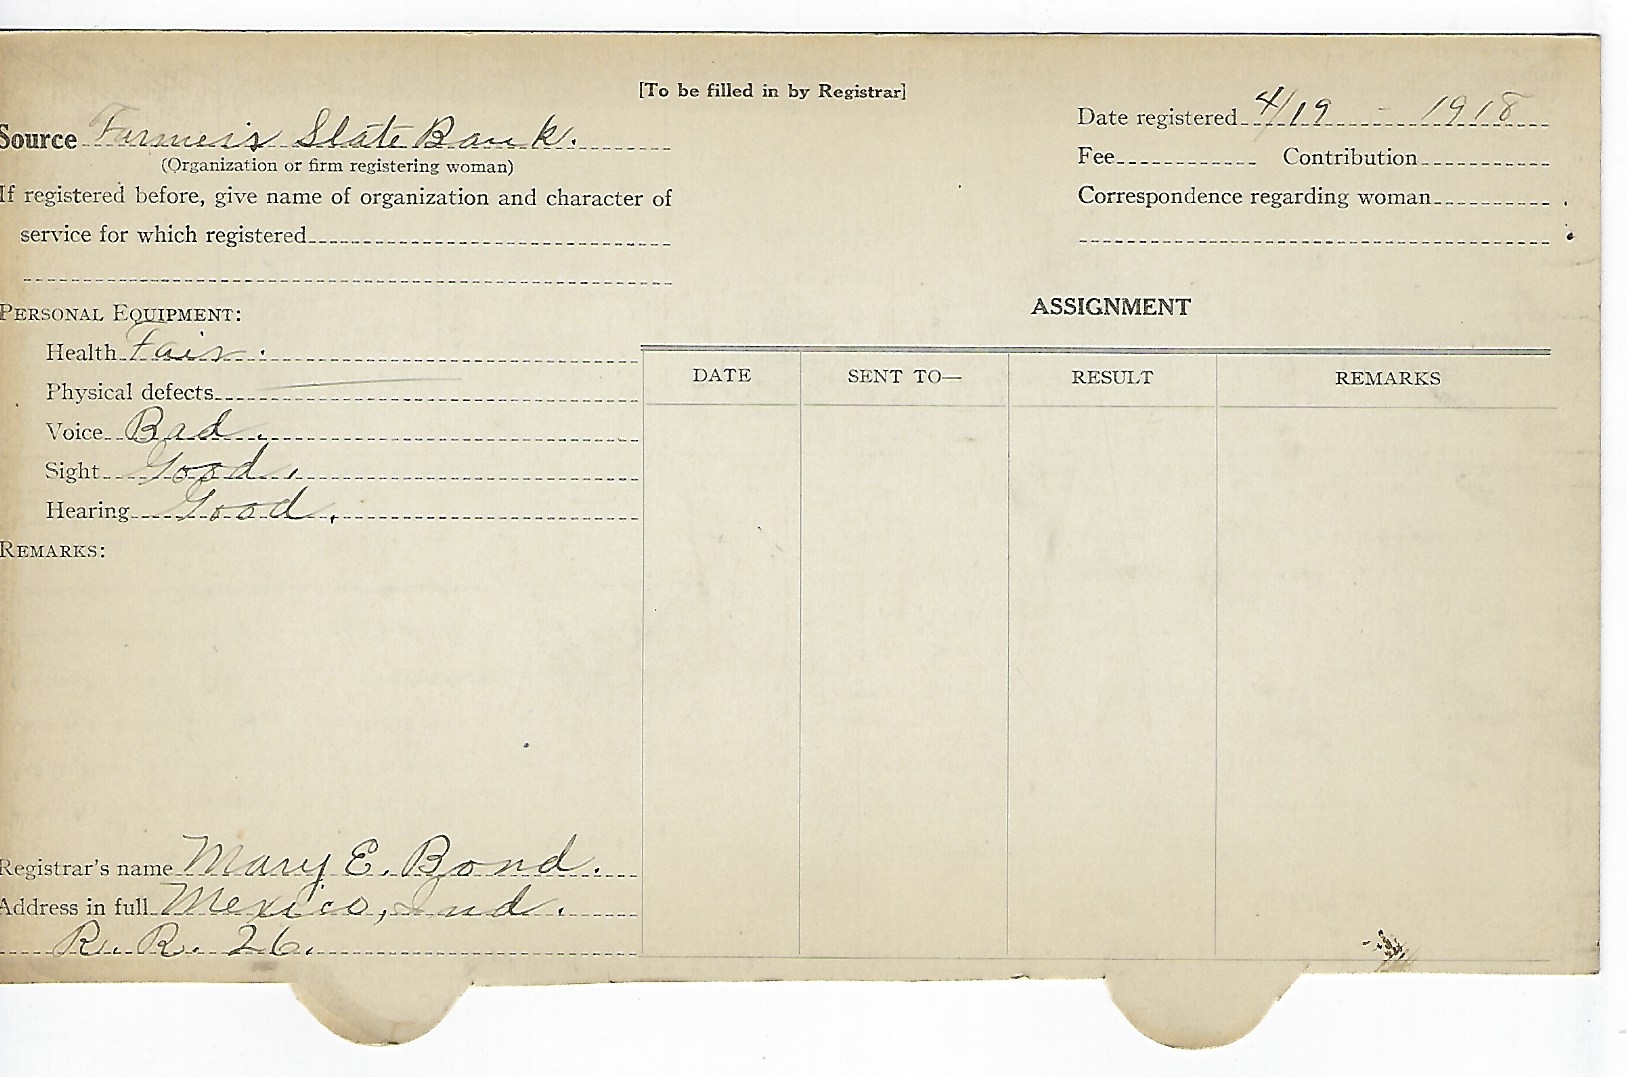 [To be filled in by Registrar]
Source Farmer's State Bank.
(Organization or firm registering woman)
If registered before, give name of organization and character of
service for which registered
Date registered 4/19 - 1918
Fee Contribution
Correspondence regarding woman
PERSONAL EQUIPMENT:
Health Fair.
Physical defects —
Voice Bad.
Sight Good.
Hearing Good.
REMARKS:
ASSIGNMENT
DATE SENT TO— RESULT REMARKS
Registrar's name Mary E. Bond.
Address in full Mexico, Ind.
R. R. 26.